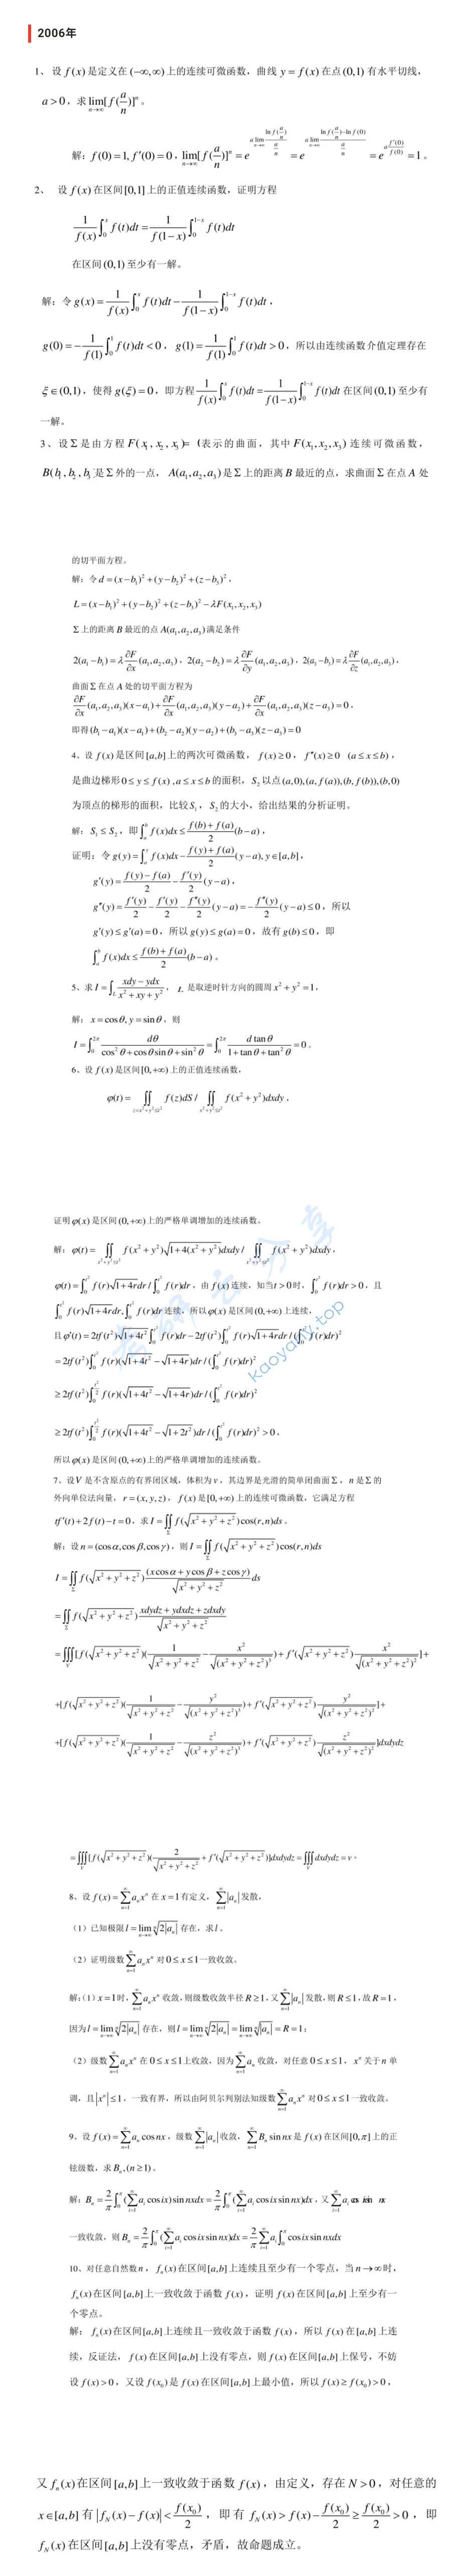 2006年
1、 设 f(x) 是定义在 (−∞,∞) 上的连续可微函数，曲线 y = f(x) 在点(0,1) 有水平切线，
a > 0，求 lim_{n→∞}[f(a/n)]^n 。
解：f(0)=1, f′(0)=0，lim_{n→∞}[f(a/n)]^n = e^{a lim_{n→∞} ln f(a/n) / (a/n)} = e^{a lim_{n→∞} (ln f(a/n) − ln f(0)) / (a/n)} = e^{a f′(0)/f(0)} = 1 。
2、 设 f(x) 在区间[0,1]上的正值连续函数，证明方程
1/f(x) ∫_0^x f(t)dt = 1/f(1−x) ∫_0^{1−x} f(t)dt
在区间(0,1)至少有一解。
解：令 g(x) = 1/f(x) ∫_0^x f(t)dt − 1/f(1−x) ∫_0^{1−x} f(t)dt，
g(0) = −1/f(1) ∫_0^1 f(t)dt < 0，g(1) = 1/f(1) ∫_0^1 f(t)dt > 0，所以由连续函数介值定理存在
ξ∈(0,1)，使得 g(ξ)=0，即方程 1/f(x) ∫_0^x f(t)dt = 1/f(1−x) ∫_0^{1−x} f(t)dt 在区间(0,1)至少有
一解。
3、设Σ是由方程 F(x₁,x₂,x₃)= (表示的曲面，其中 F(x₁,x₂,x₃) 连续可微函数，
B(b₁,b₂,b₃ 是Σ外的一点，A(a₁,a₂,a₃)是Σ上的距离 B 最近的点，求曲面Σ在点 A 处
的切平面方程。
解：令 d = (x−b₁)² + (y−b₂)² + (z−b₃)²，
L = (x−b₁)² + (y−b₂)² + (z−b₃)² − λF(x₁,x₂,x₃)
Σ上的距离 B 最近的点 A(a₁,a₂,a₃) 满足条件
2(a₁−b₁) = λ ∂F/∂x (a₁,a₂,a₃)，2(a₂−b₂) = λ ∂F/∂y (a₁,a₂,a₃)，2(a₃−b₃) = λ ∂F/∂z (a₁,a₂,a₃)，
曲面Σ在点 A 处的切平面方程为
∂F/∂x (a₁,a₂,a₃)(x−a₁) + ∂F/∂x (a₁,a₂,a₃)(y−a₂) + ∂F/∂x (a₁,a₂,a₃)(z−a₃) = 0，
即得(b₁−a₁)(x−a₁)+(b₂−a₂)(y−a₂)+(b₃−a₃)(z−a₃)=0
4、设 f(x) 是区间[a,b]上的两次可微函数， f(x)≥0， f″(x)≥0 (a≤x≤b)，
是曲边梯形 0≤y≤f(x), a≤x≤b 的面积，S₂ 以点(a,0),(a,f(a)),(b,f(b)),(b,0)
为顶点的梯形的面积，比较 S₁， S₂ 的大小，给出结果的分析证明。
解：S₁≤S₂，即 ∫_a^b f(x)dx ≤ (f(b)+f(a))/2 (b−a)，
证明：令 g(y) = ∫_a^y f(x)dx − (f(y)+f(a))/2 (y−a), y∈[a,b]，
g′(y) = (f(y)−f(a))/2 − f′(y)/2 (y−a)，
g″(y) = f′(y)/2 − f′(y)/2 − f″(y)/2 (y−a) = −f″(y)/2 (y−a) ≤ 0，所以
g′(y)≤g′(a)=0，所以 g(y)≤g(a)=0，故有 g(b)≤0，即
∫_a^b f(x)dx ≤ (f(b)+f(a))/2 (b−a)。
5、求 I = ∫_L (xdy−ydx)/(x²+xy+y²)， L 是取逆时针方向的圆周 x²+y²=1，
解：x=cosθ, y=sinθ，则
I = ∫_0^{2π} dθ/(cos²θ+cosθsinθ+sin²θ) = ∫_0^{2π} d tanθ/(1+tanθ+tan²θ) = 0。
6、设 f(x) 是区间[0,+∞)上的正值连续函数，
φ(t) = ∬_{z=x²+y²≤t²} f(z)dS / ∬_{x²+y²≤t²} f(x²+y²)dxdy，
证明 φ(x) 是区间(0,+∞)上的严格单调增加的连续函数。
解：φ(t) = ∬_{x²+y²≤t²} f(x²+y²)√(1+4(x²+y²))dxdy / ∬_{x²+y²≤t²} f(x²+y²)dxdy，
φ(t) = ∫_0^{t²} f(r)√(1+4r)dr / ∫_0^{t²} f(r)dr，由 f(x) 连续，知当 t>0 时，∫_0^{t²} f(r)dr > 0，且
∫_0^{t²} f(r)√(1+4r)dr, ∫_0^{t²} f(r)dr 连续，所以 φ(x) 是区间(0,+∞)上连续，
且 φ′(t) = 2tf(t²)√(1+4t²) ∫_0^{t²} f(r)dr − 2tf(t²) ∫_0^{t²} f(r)√(1+4r)dr / (∫_0^{t²} f(r)dr)²
= 2tf(t²) ∫_0^{t²} f(r)(√(1+4t²) − √(1+4r))dr / (∫_0^{t²} f(r)dr)²
≥ 2tf(t²) ∫_0^{t²/2} f(r)(√(1+4t²) − √(1+4r))dr / (∫_0^{t²} f(r)dr)²
≥ 2tf(t²) ∫_0^{t²/2} f(r)(√(1+4t²) − √(1+2t²))dr / (∫_0^{t²} f(r)dr)² > 0，
所以 φ(x) 是区间(0,+∞)上的严格单调增加的连续函数。
7、设 V 是不含原点的有界闭区域，体积为 v，其边界是光滑的简单闭曲面Σ，n 是Σ的
外向单位法向量，r=(x,y,z)， f(x) 是[0,+∞)上的连续可微函数，它满足方程
tf′(t)+2f(t)−t=0，求 I = ∬_Σ f(√(x²+y²+z²))cos(r,n)ds。
解：设 n=(cosα,cosβ,cosγ)，则 I = ∬_Σ f(√(x²+y²+z²))cos(r,n)ds
I = ∬_Σ f(√(x²+y²+z²)) (xcosα+ycosβ+zcosγ)/√(x²+y²+z²) ds
= ∬_Σ f(√(x²+y²+z²)) (xdydz+ydxdz+zdxdy)/√(x²+y²+z²)
= ∭_V [f(√(x²+y²+z²))(1/√(x²+y²+z²) − x²/√((x²+y²+z²)³)) + f′(√(x²+y²+z²)) x²/√((x²+y²+z²)²)]+
+[f(√(x²+y²+z²))(1/√(x²+y²+z²) − y²/√((x²+y²+z²)³)) + f′(√(x²+y²+z²)) y²/√((x²+y²+z²)²)]+
+[f(√(x²+y²+z²))(1/√(x²+y²+z²) − z²/√((x²+y²+z²)³)) + f′(√(x²+y²+z²)) z²/√((x²+y²+z²)²)]dxdydz
= ∭_V [f(√(x²+y²+z²))(2/√(x²+y²+z²) + f′(√(x²+y²+z²))]dxdydz = ∭_V dxdydz = v。
8、设 f(x) = ∑_{n=1}^∞ aₙxⁿ 在 x=1 有定义，∑_{n=1}^∞ |aₙ| 发散，
（1）已知极限 l = lim_{n→∞} ⁿ√(2|aₙ|) 存在，求 l。
（2）证明级数 ∑_{n=1}^∞ aₙxⁿ 对 0≤x≤1 一致收敛。
解：（1）x=1时，∑_{n=1}^∞ aₙxⁿ 收敛，则级数收敛半径 R≥1，又 ∑_{n=1}^∞ |aₙ| 发散，则 R≤1，故 R=1，
因为 l = lim_{n→∞} ⁿ√(2|aₙ|) 存在，则 l = lim_{n→∞} ⁿ√(2|aₙ|) = lim_{n→∞} ⁿ√|aₙ| = R = 1；
（2）级数 ∑_{n=1}^∞ aₙxⁿ 在 0≤x≤1 上收敛，因为 ∑_{n=1}^∞ aₙ 收敛，对任意 0≤x≤1， xⁿ 关于 n 单
调，且 |xⁿ|≤1，一致有界，所以由阿贝尔判别法知级数 ∑_{n=1}^∞ aₙxⁿ 对 0≤x≤1 一致收敛。
9、设 f(x) = ∑_{n=1}^∞ aₙcos nx，级数 ∑_{n=1}^∞ |aₙ| 收敛，∑_{n=1}^∞ Bₙ sin nx 是 f(x) 在区间[0,π]上的正
弦级数，求 Bₙ,(n≥1)。
解：Bₙ = 2/π ∫_0^π (∑_{i=1}^∞ aᵢ cos ix) sin nxdx = 2/π ∫_0^π (∑_{i=1}^∞ aᵢ cos ix sin nx)dx，又 ∑_{i=1}^∞ aᵢ cos ix sin nx
一致收敛，则 Bₙ = 2/π ∫_0^π (∑_{i=1}^∞ aᵢ cos ix sin nx)dx = 2/π ∑_{i=1}^∞ aᵢ ∫_0^π cos ix sin nxdx
10、对任意自然数 n， fₙ(x) 在区间[a,b]上连续且至少有一个零点，当 n→∞ 时，
fₙ(x) 在区间[a,b]上一致收敛于函数 f(x)，证明 f(x) 在区间[a,b]上至少有一
个零点。
解： fₙ(x) 在区间[a,b]上连续且一致收敛于函数 f(x)，所以 f(x) 在[a,b]上连
续，反证法， f(x) 在区间[a,b]上没有零点，则 f(x) 在区间[a,b]上保号，不妨
设 f(x)>0，又设 f(x₀) 是 f(x) 在区间[a,b]上最小值，所以 f(x)≥f(x₀)>0，
又 fₙ(x) 在区间[a,b]上一致收敛于函数 f(x)，由定义，存在 N>0，对任意的
x∈[a,b] 有 |f_N(x)−f(x)| < f(x₀)/2 ，即有 f_N(x) > f(x) − f(x₀)/2 ≥ f(x₀)/2 > 0，即
f_N(x) 在区间[a,b]上没有零点，矛盾，故命题成立。
考研云分享
kaoyany.top